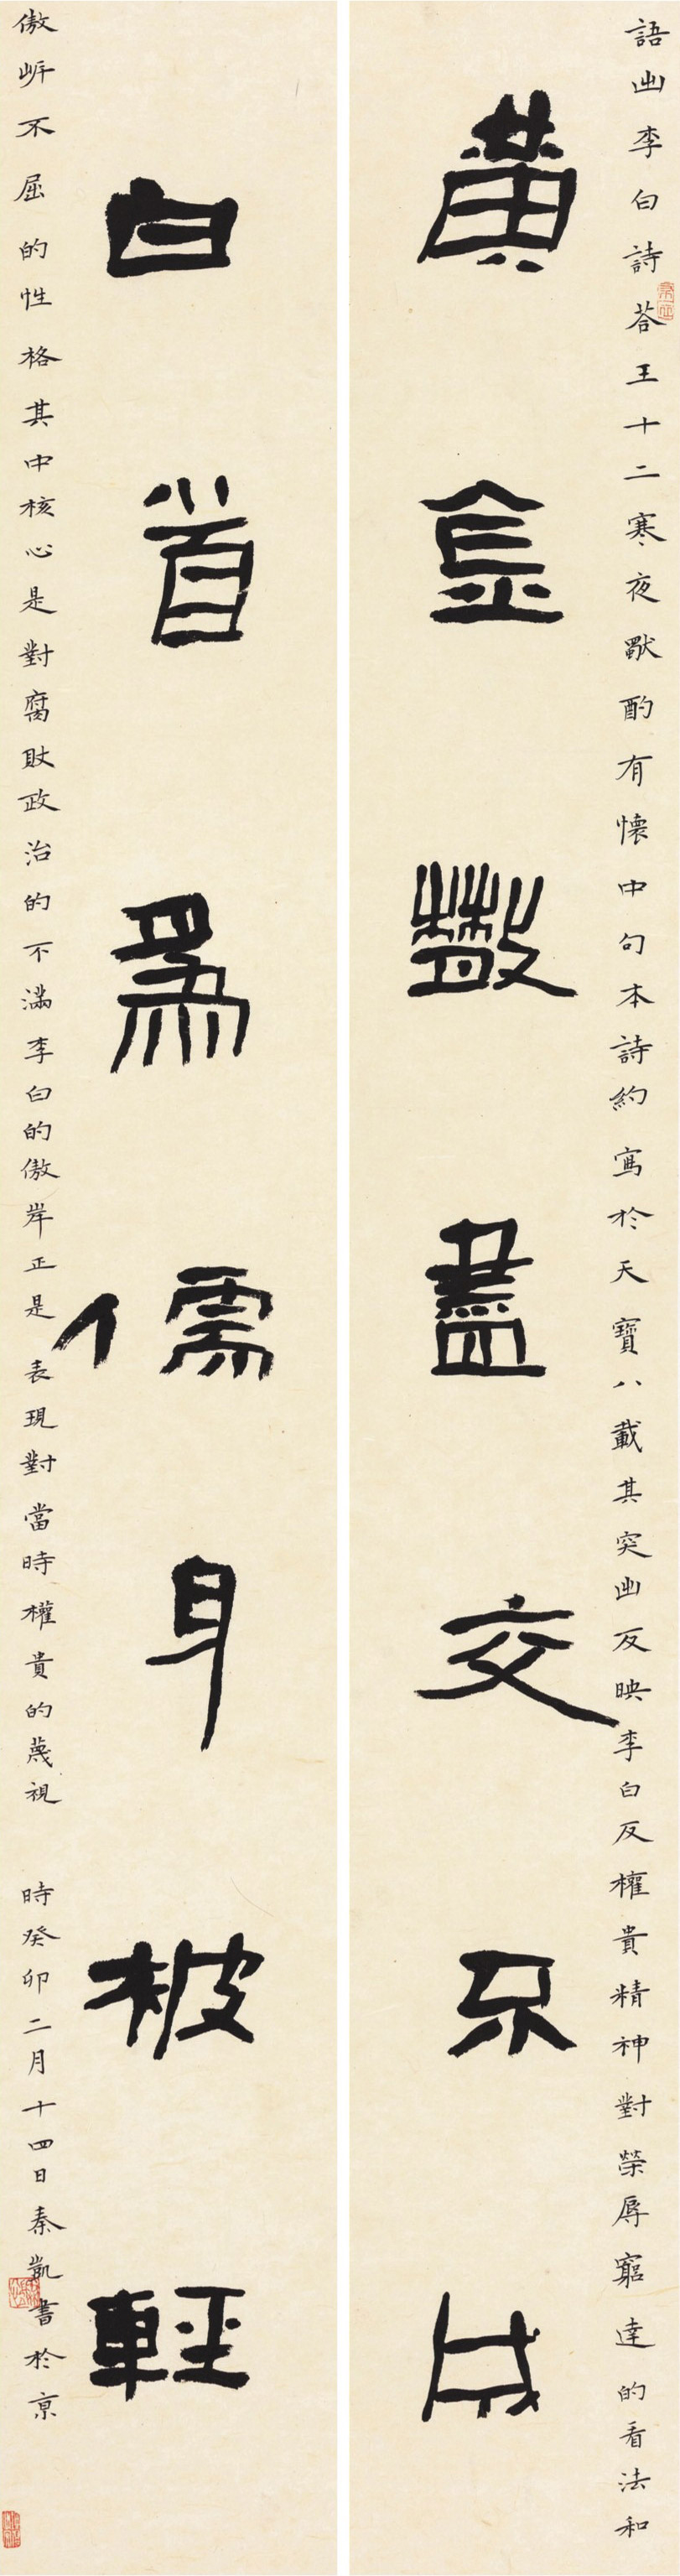 語出李白詩荅王十二寒夜獨酌有懷中句本詩約寫於天寶八載其突出反映李白反權貴精神對榮辱窮達的看法和
黃金散盡交不成
白首為儒身被輕
傲岸不屈的性格其中核心是對腐敗政治的不滿李白的傲岸正是表現對當時權貴的蔑視 時癸卯二月十四日秦凱書於京